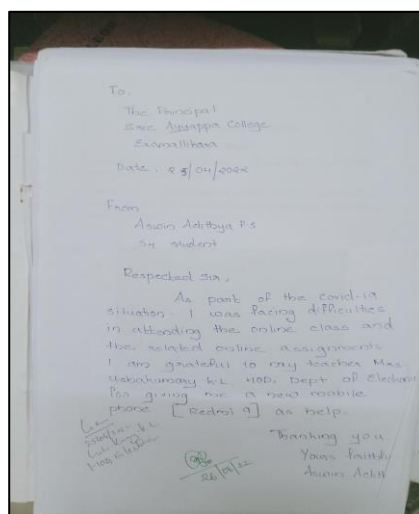 To,
The Principal
Sree Ayyappa College
Eramallikara
Date : 25/04/2022
From
Aswin Adithya P S
S4 student
Respected Sir,
As part of the covid-19
situation. I was facing difficulties
in attending the online class and
the related online assignments
I am grateful to my teacher Mrs.
Ushakumary K.L HOD, Dept of Electroni
for giving me a new mobile
phone [Redmi 9] as help.
Thanking you
Yours faithfully
Aswin Adith
26/04/22